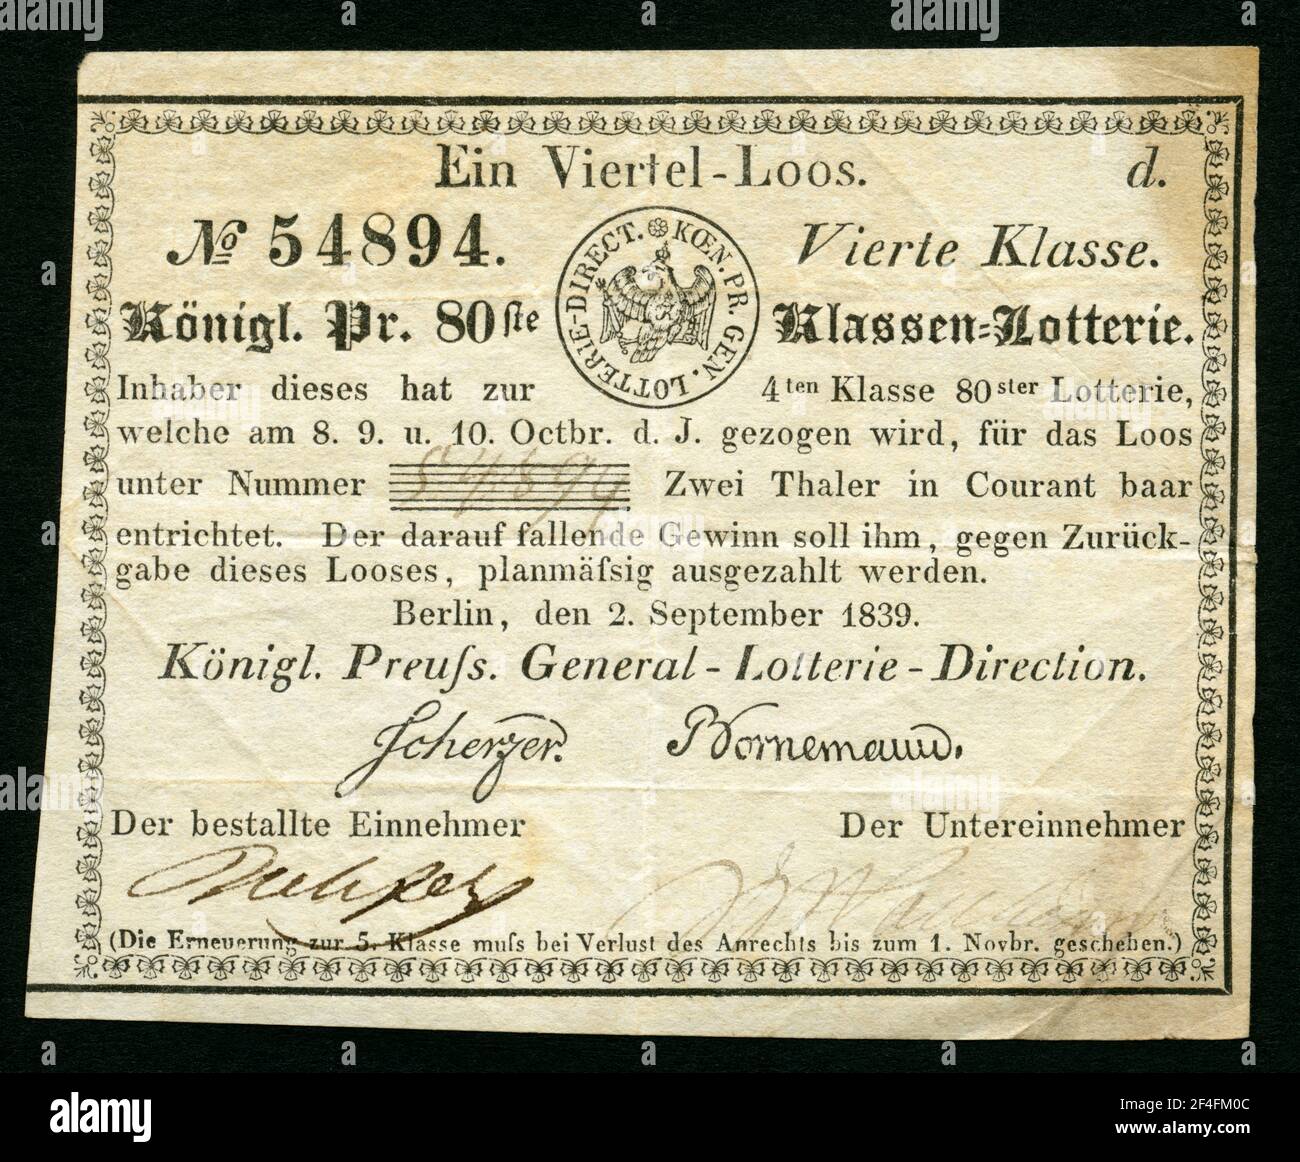 Ein Viertel-Loos. d.
№ 54894. Vierte Klasse.
KŒN. PR. GEN. LOTTERIE-DIRECT.
Königl. Pr. 80ste Klassen-Lotterie.
Inhaber dieses hat zur 4ten Klasse 80ster Lotterie,
welche am 8. 9. u. 10. Octbr. d. J. gezogen wird, für das Loos
unter Nummer 54894 Zwei Thaler in Courant baar
entrichtet. Der darauf fallende Gewinn soll ihm, gegen Zurück-
gabe dieses Looses, planmäſsig ausgezahlt werden.
Berlin, den 2. September 1839.
Königl. Preuſs. General-Lotterie-Direction.
Scherzer. Bornemann.
Der bestallte Einnehmer Der Untereinnehmer
(Die Erneuerung zur 5. Klasse muſs bei Verlust des Anrechts bis zum 1. Novbr. geschehen.)
alamy
Image ID: 2F4FM0C
www.alamy.com